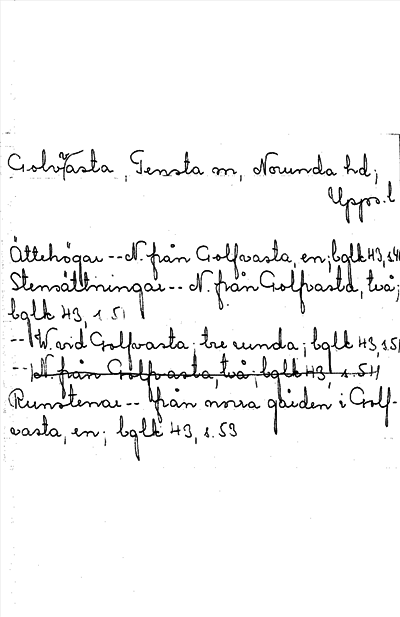 Golvasta, Tensta sn, Norunda hd,
Upps. l
Ättehögar -- N. från Golfvasta, en; bglk 43, s.
Stensättningar -- N. från Golfvasta, två;
bglk 43, s 51
-- W. vid Golfvasta; tre runda; bglk 43, s.51
-- N. från Golfvasta, två; bglk 43, s. 54
Runstenar -- från norra gården i Golf-
vasta, en; bglk 43, s.53